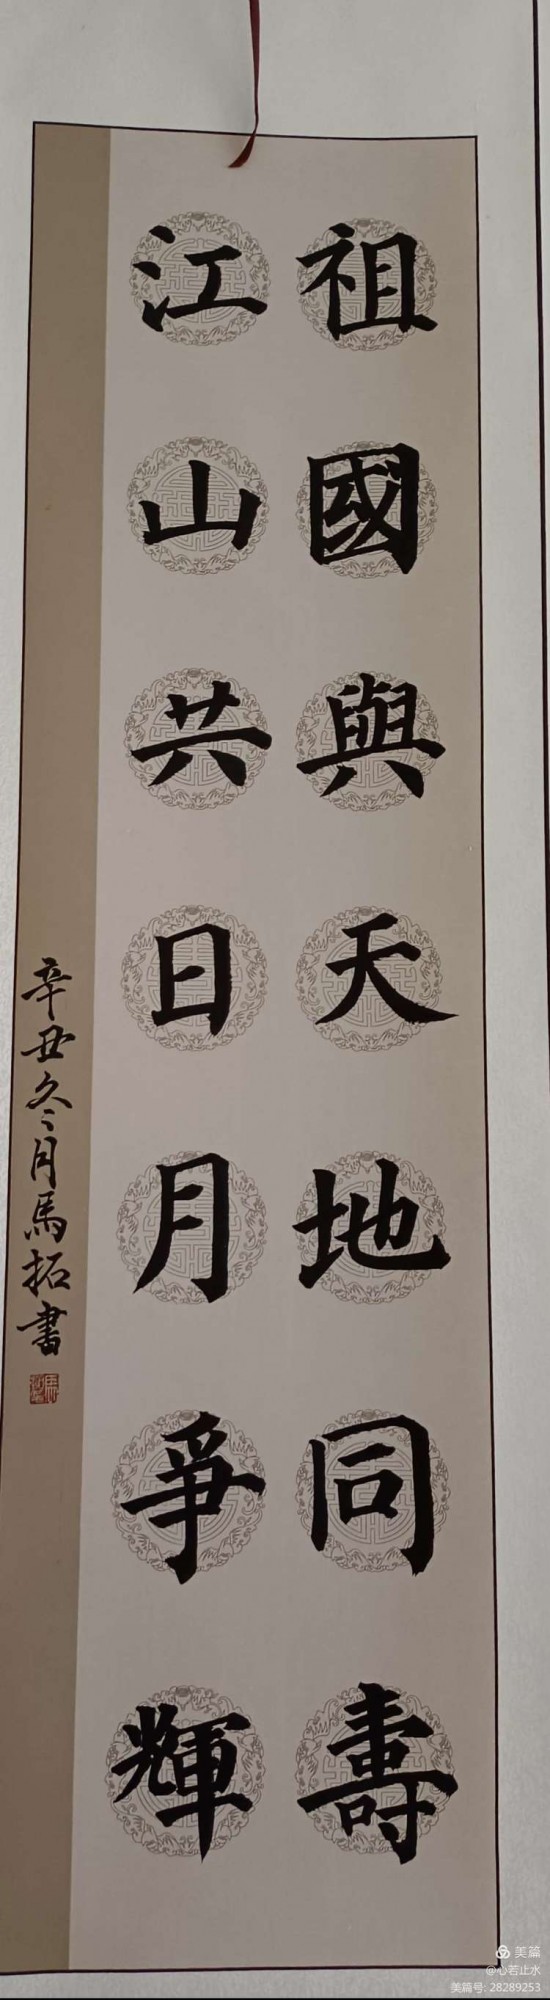 祖國與天地同壽
江山共日月爭輝
辛丑冬月馬拓書
美篇
@心若止水
美篇号: 28289253